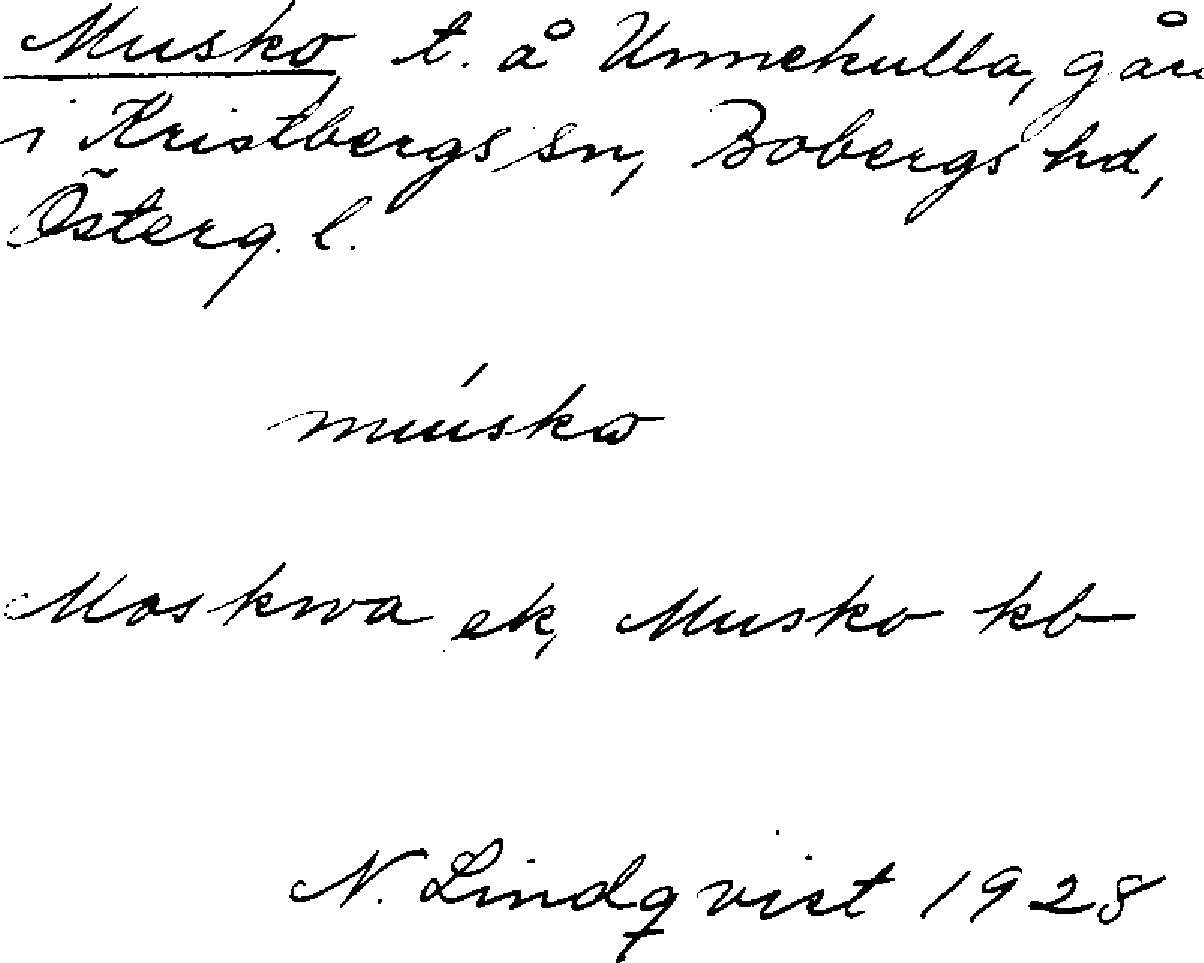 Musko t. å Unnekulla, går
i Kristbergs sn, Bobergs hd,
Österg. l.
múskω
Moskwa ek, Musko kb
N. Lindqvist 1928